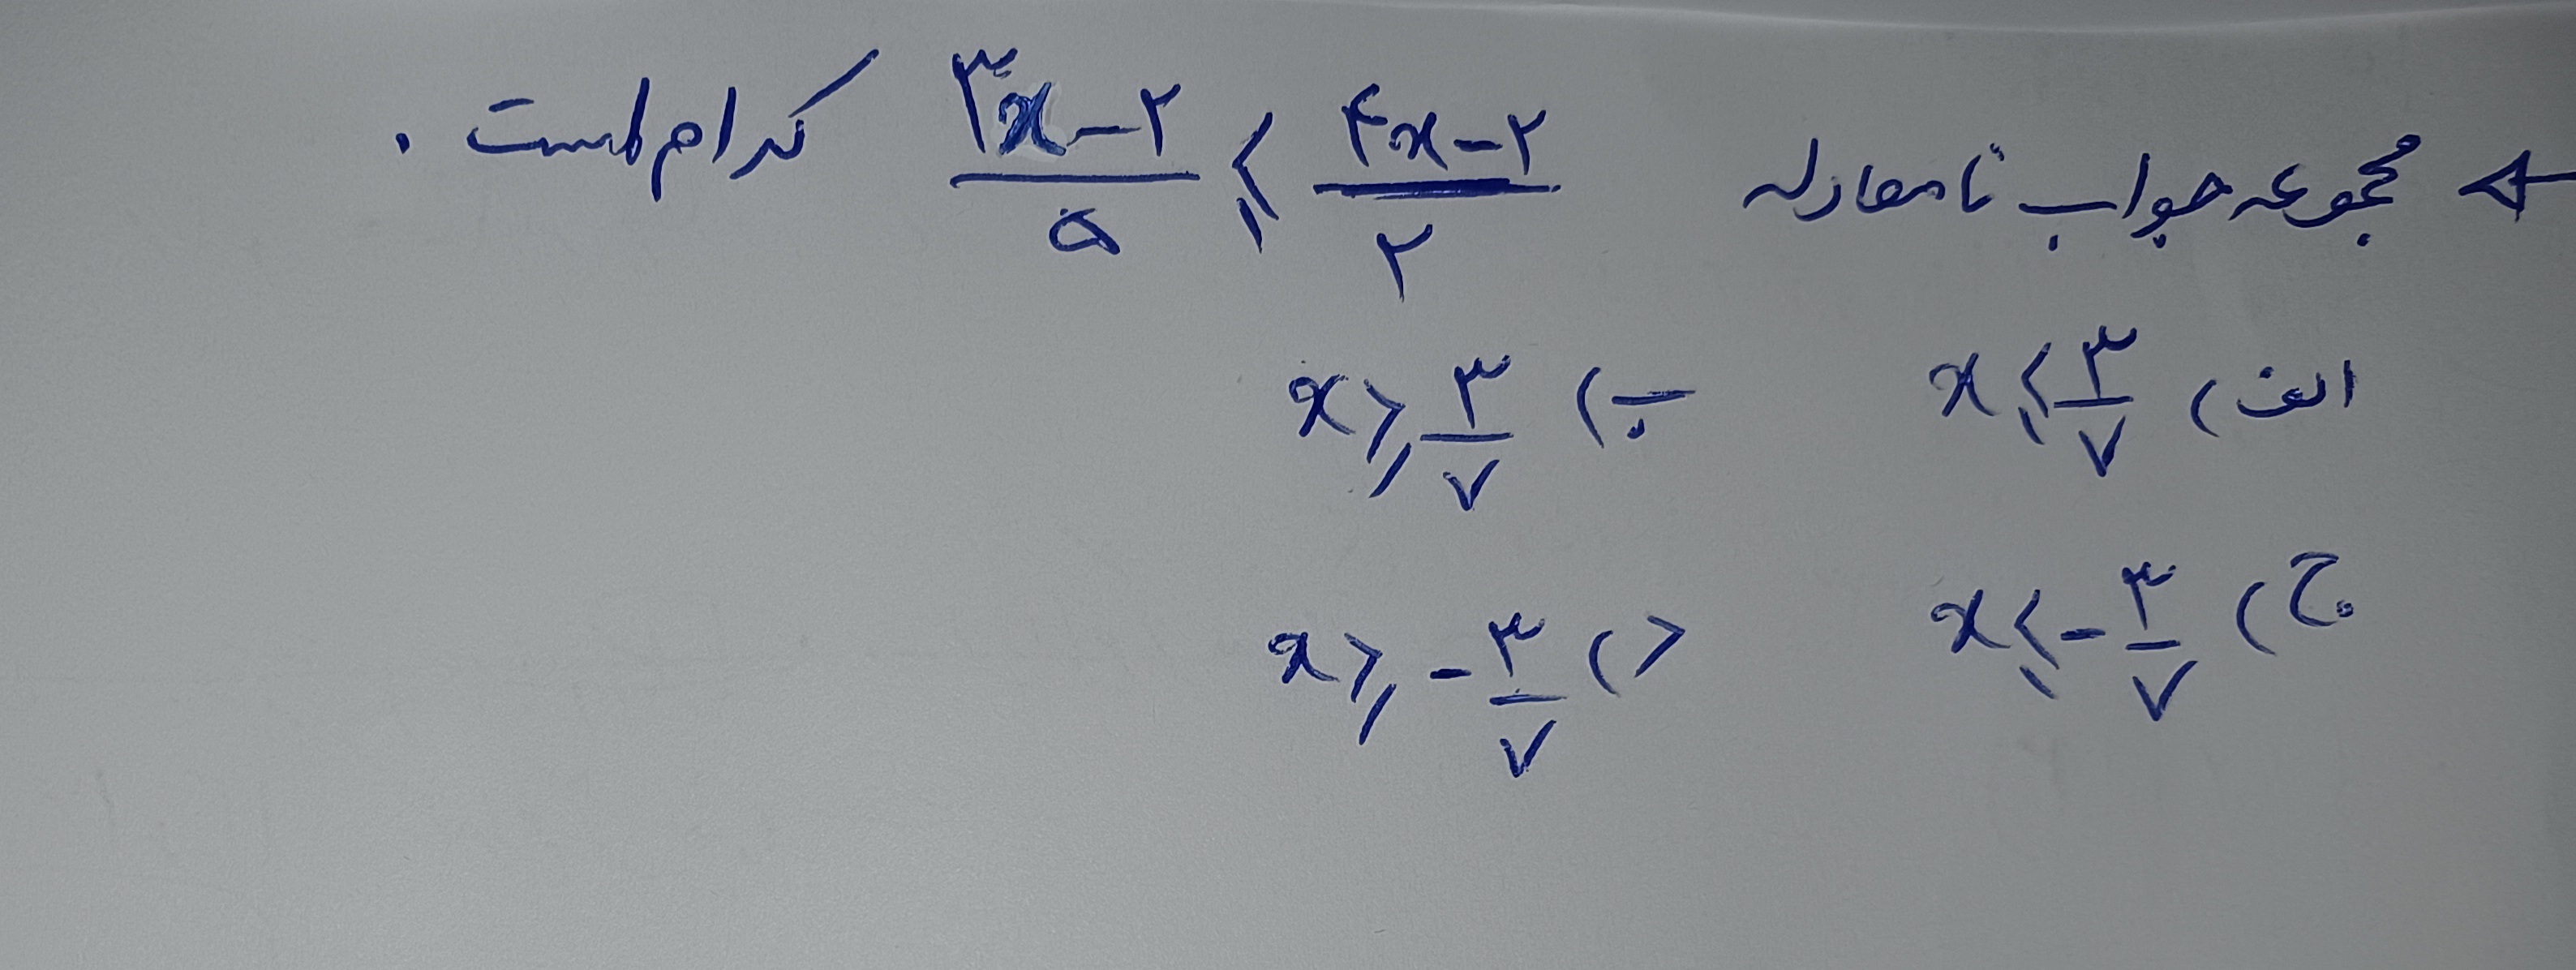 ← مجموعه جواب نامعادله (۳x-۲)/۵ ≤ (۴x-۲)/۲ کدام است .
الف) x ≤ ۳/۷ ب) x ≥ ۳/۷
ج) x ≤ -۳/۷ د) x ≥ -۳/۷